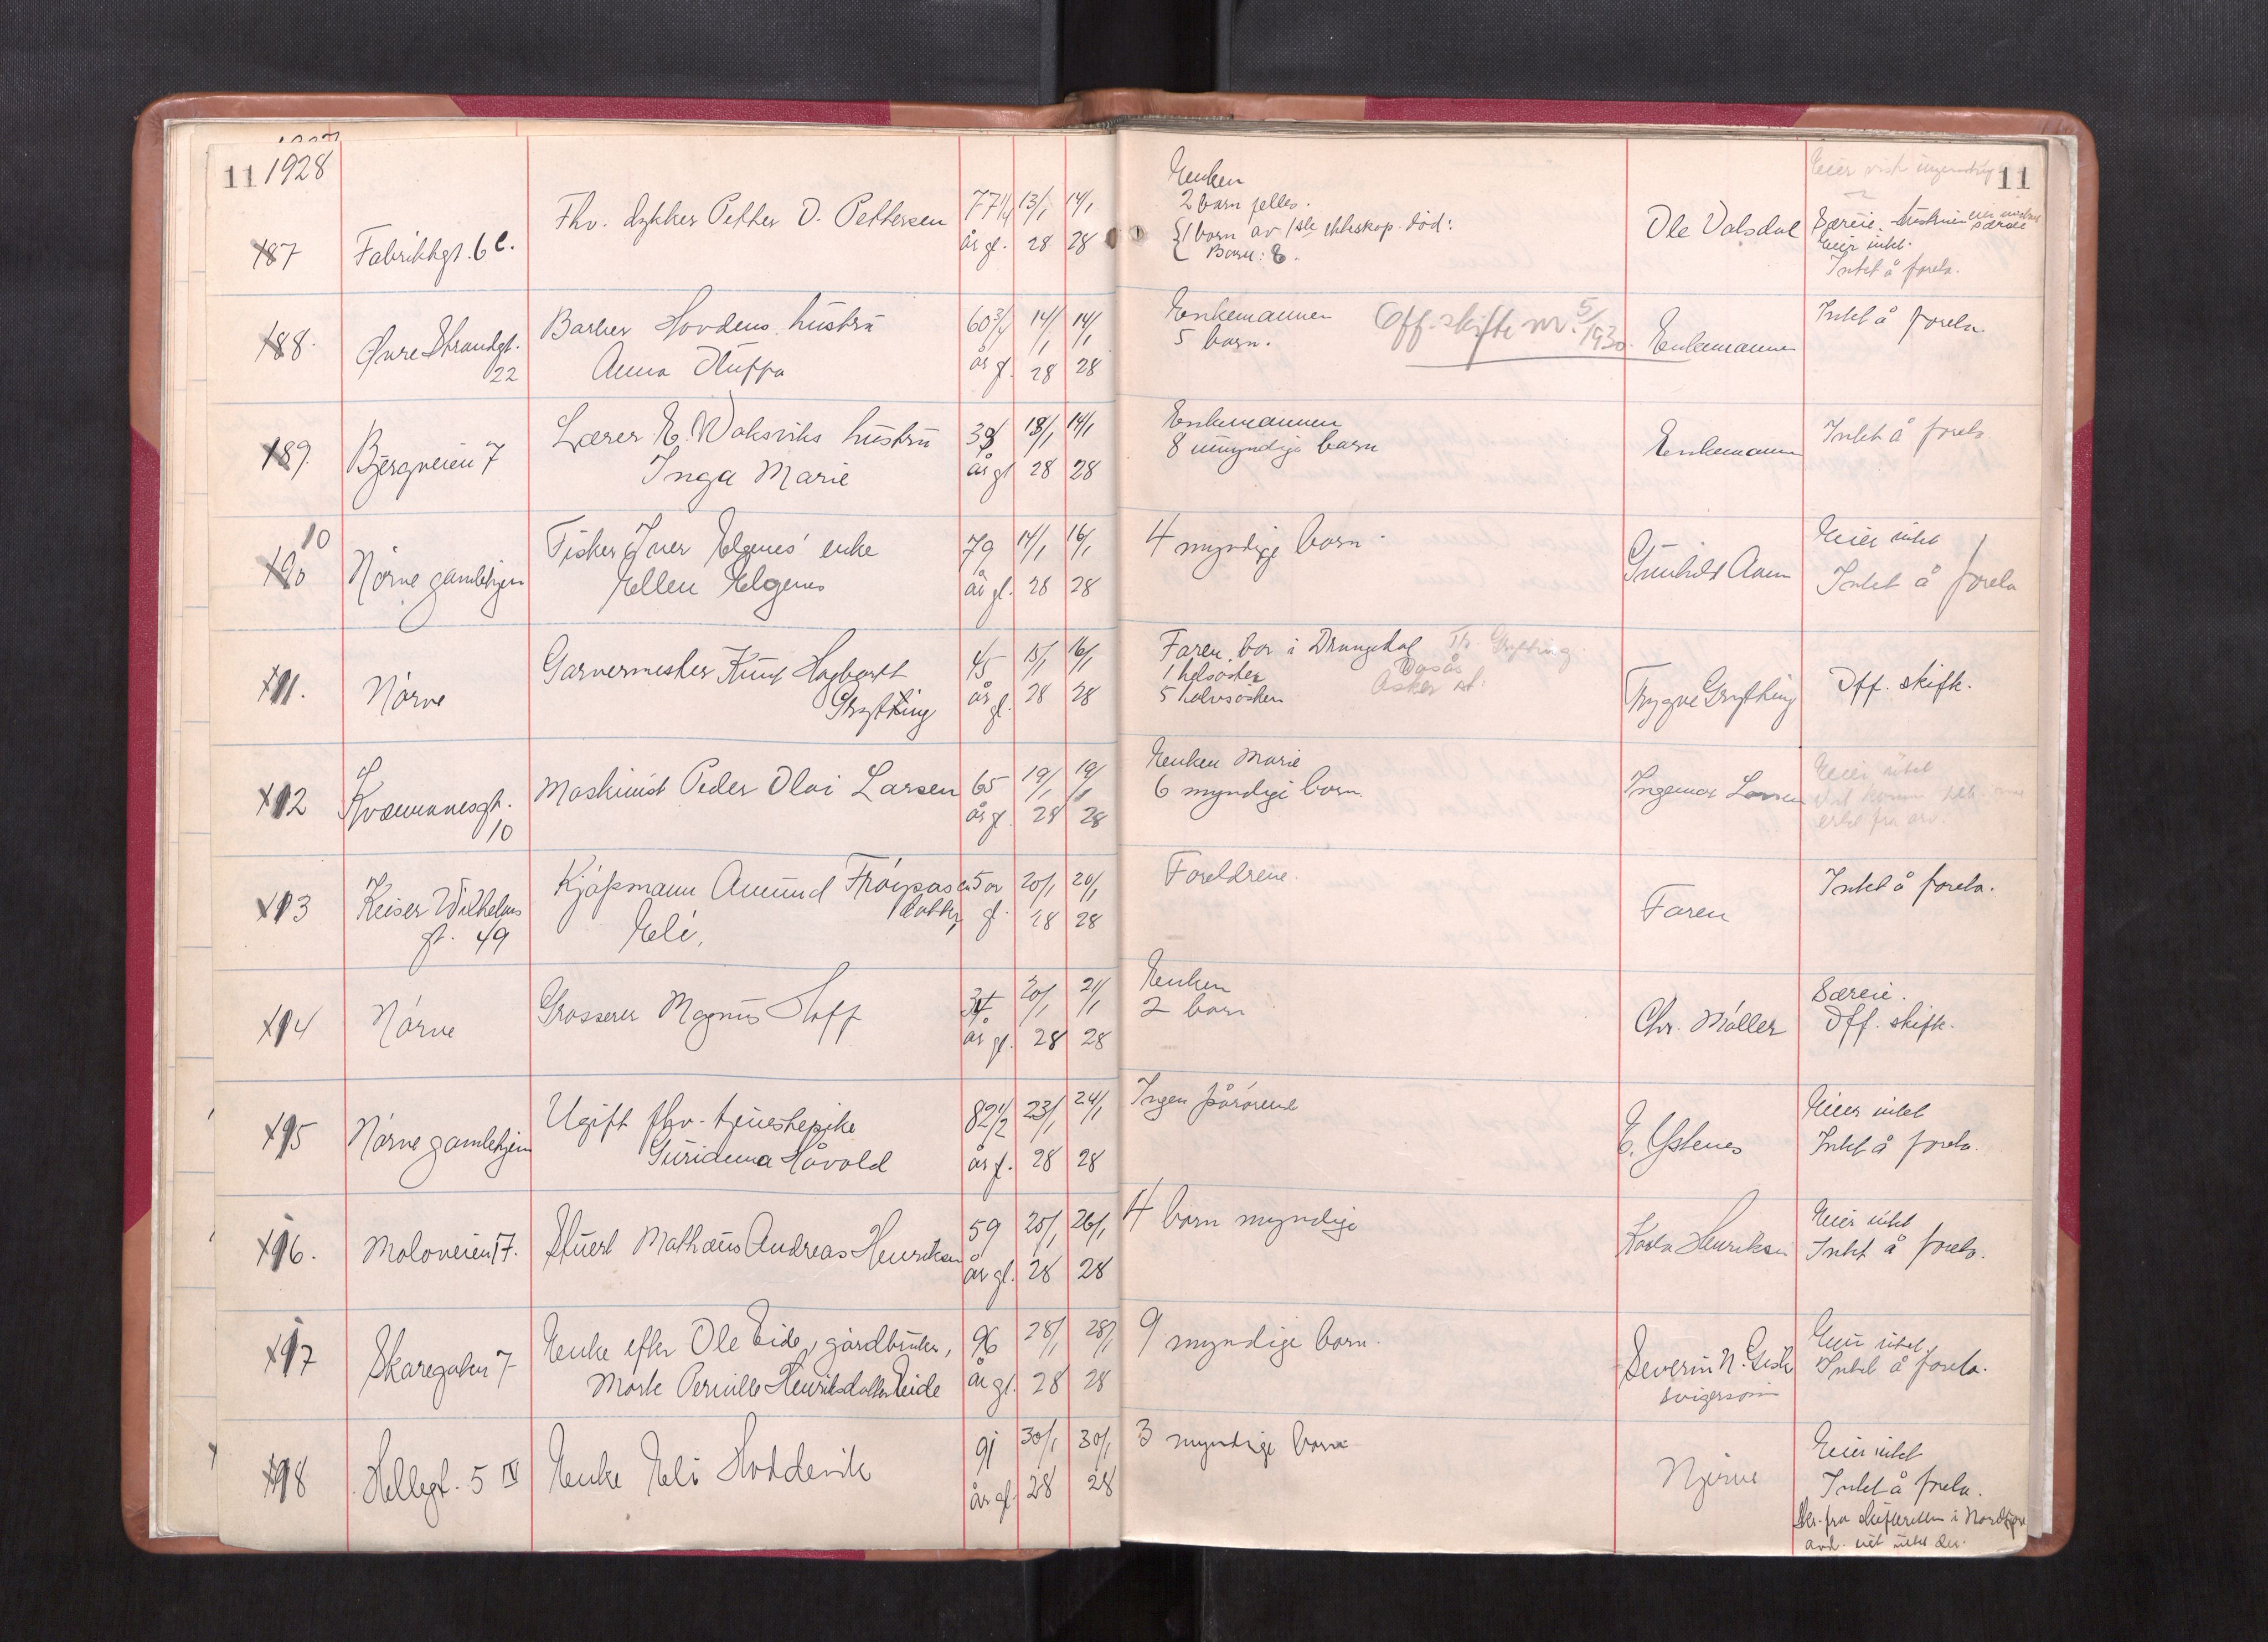 11 1928
11
187
Fabrikkgt. 6 C.
Fhv. dykker Petter O. Pettersen
77 1/4 13/1 14/1
år gl. 28 28
Enken
2 barn felles.
1 barn av 1ste ekteskap. död:
Barn: 8.
Ole Valsdal
Særeie. hustruen
Eier intet.
Intet å forela.
188.
Øvre Strandgt.
22
Barber Hovdens hustru
Anna Stuffa
60 3/4 14/1 14/1
år gl. 28 28
Enkemannen
5 barn.
Off. skifte nr. 5/1930.
Enkemannen
Intet å forela
189.
Bjergveien 7
Lærer E. Waksviks hustru
Inga Marie
39 13/1 14/1
år gl 28 28
Enkemannen
8 umyndige barn
Enkemannen
Intet å forela
10
190
Nørve gamlehjem
Fisker Iver Elgenes' enke
Ellen Elgenes
79 14/1 16/1
år gl. 28 28
4 myndige barn.
Gunhild Aven
Eier intet
Intet å forela
11.
Nørve
Garvermester Knut Hagbart
Grytting
45 15/1 16/1
år gl. 28 28
Faren, bor i Drangedal
1 helsøster
5 halvsøsken
Th. Grytting.
Asker st.
Trygve Grytting
Off. skifte.
12
Kvennanesgt.
10
Maskinist Peder Olai Larsen
65 19/1 19/1
år gl. 28 28
Enken Marie
6 myndige barn.
Ingemar Larsen
Eier intet
13
Keiser Wilhelms
gt. 49
Kjøpmann Amund Frøysas datter,
Eli,
5 år 20/1 20/1
gl. 28 28
Foreldrene.
Faren
Intet å forela.
14
Nørve
Grosserer Magnus Hoff
34 20/1 21/1
år gl. 28 28
Enken
2 barn
Chr. Møller
Særeie.
Off. skifte.
15
Nørve gamlehjem
Ugift fhv. tjenestepike
Guridanna Håvold
82 1/2 23/1 24/1
år gl. 28 28
Ingen pårørende
E. Ystenes
Eier intet
Intet å forela.
16.
Moloveien 17.
Stuert Mathæus Andreas Henriksen
59 25/1 26/1
år gl. 28 28
4 barn myndige
Karla Henriksen
Eier intet
Intet å forela.
17
Skaregaten 7
Enke efter Ole Eide, gårdbruker,
Marte Pernille Henriksdatter Eide
96 28/1 28/1
år gl. 28 28
9 myndige barn.
Severin N. Giske
svigersønn
Eier intet.
Intet å forela.
18
Hellegt. 5 IV
Enke Eli Hoddevik
91 30/1 30/1
år gl. 28 28
3 myndige barn
Njerve
Eier intet
Intet å forela.
Skr. fra skifteretten i Nordfjord